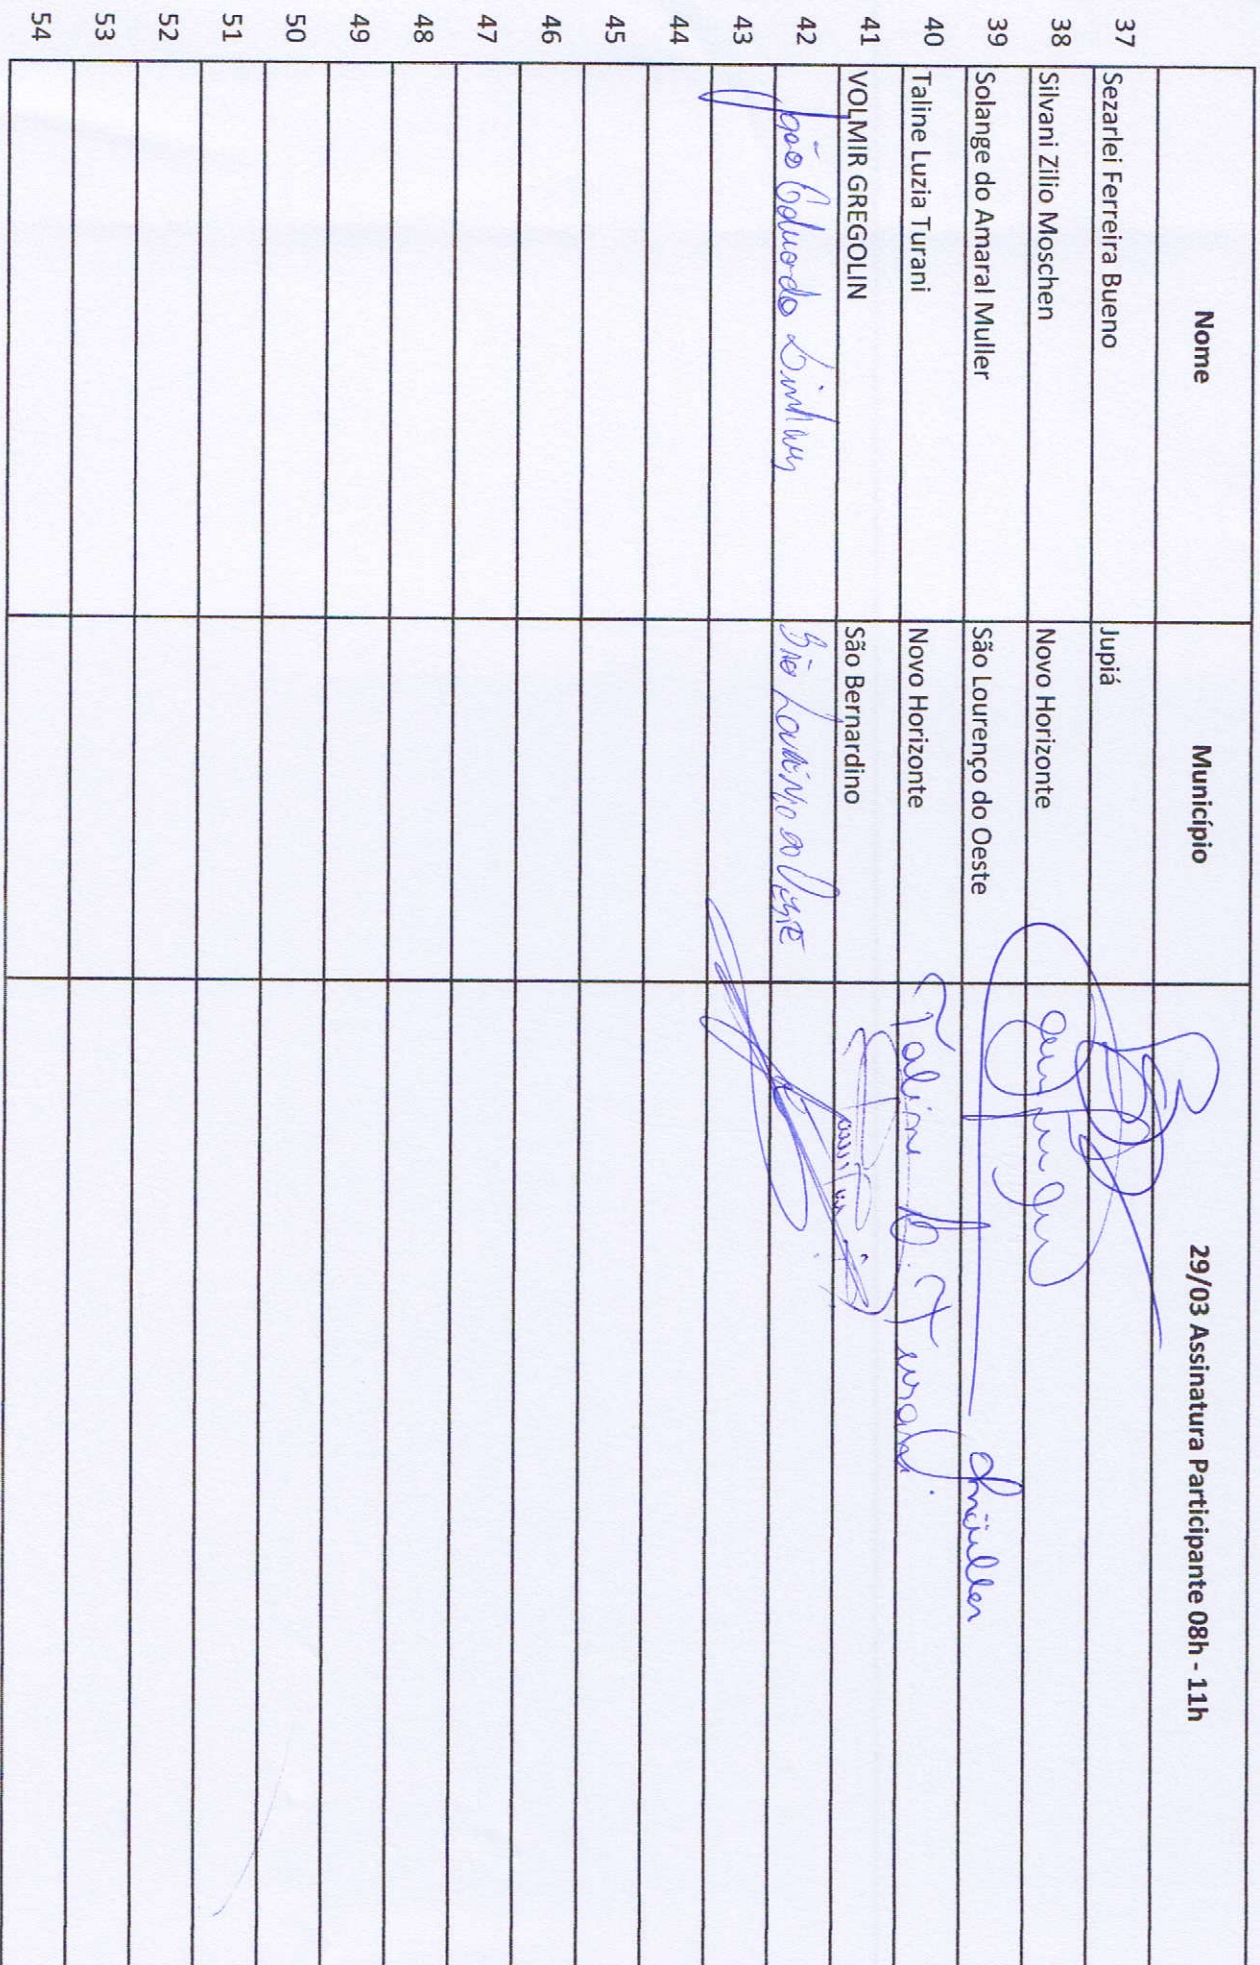 Nome Município 29/03 Assinatura Participante 08h - 11h
37 Sezarlei Ferreira Bueno Jupiá
38 Silvani Zilio Moschen Novo Horizonte
39 Solange do Amaral Muller São Lourenço do Oeste
40 Taline Luzia Turani Novo Horizonte Taline L. Turani.
41 VOLMIR GREGOLIN São Bernardino
42 João Eduardo São Lourenço do Oeste
43
44
45
46
47
48
49
50
51
52
53
54